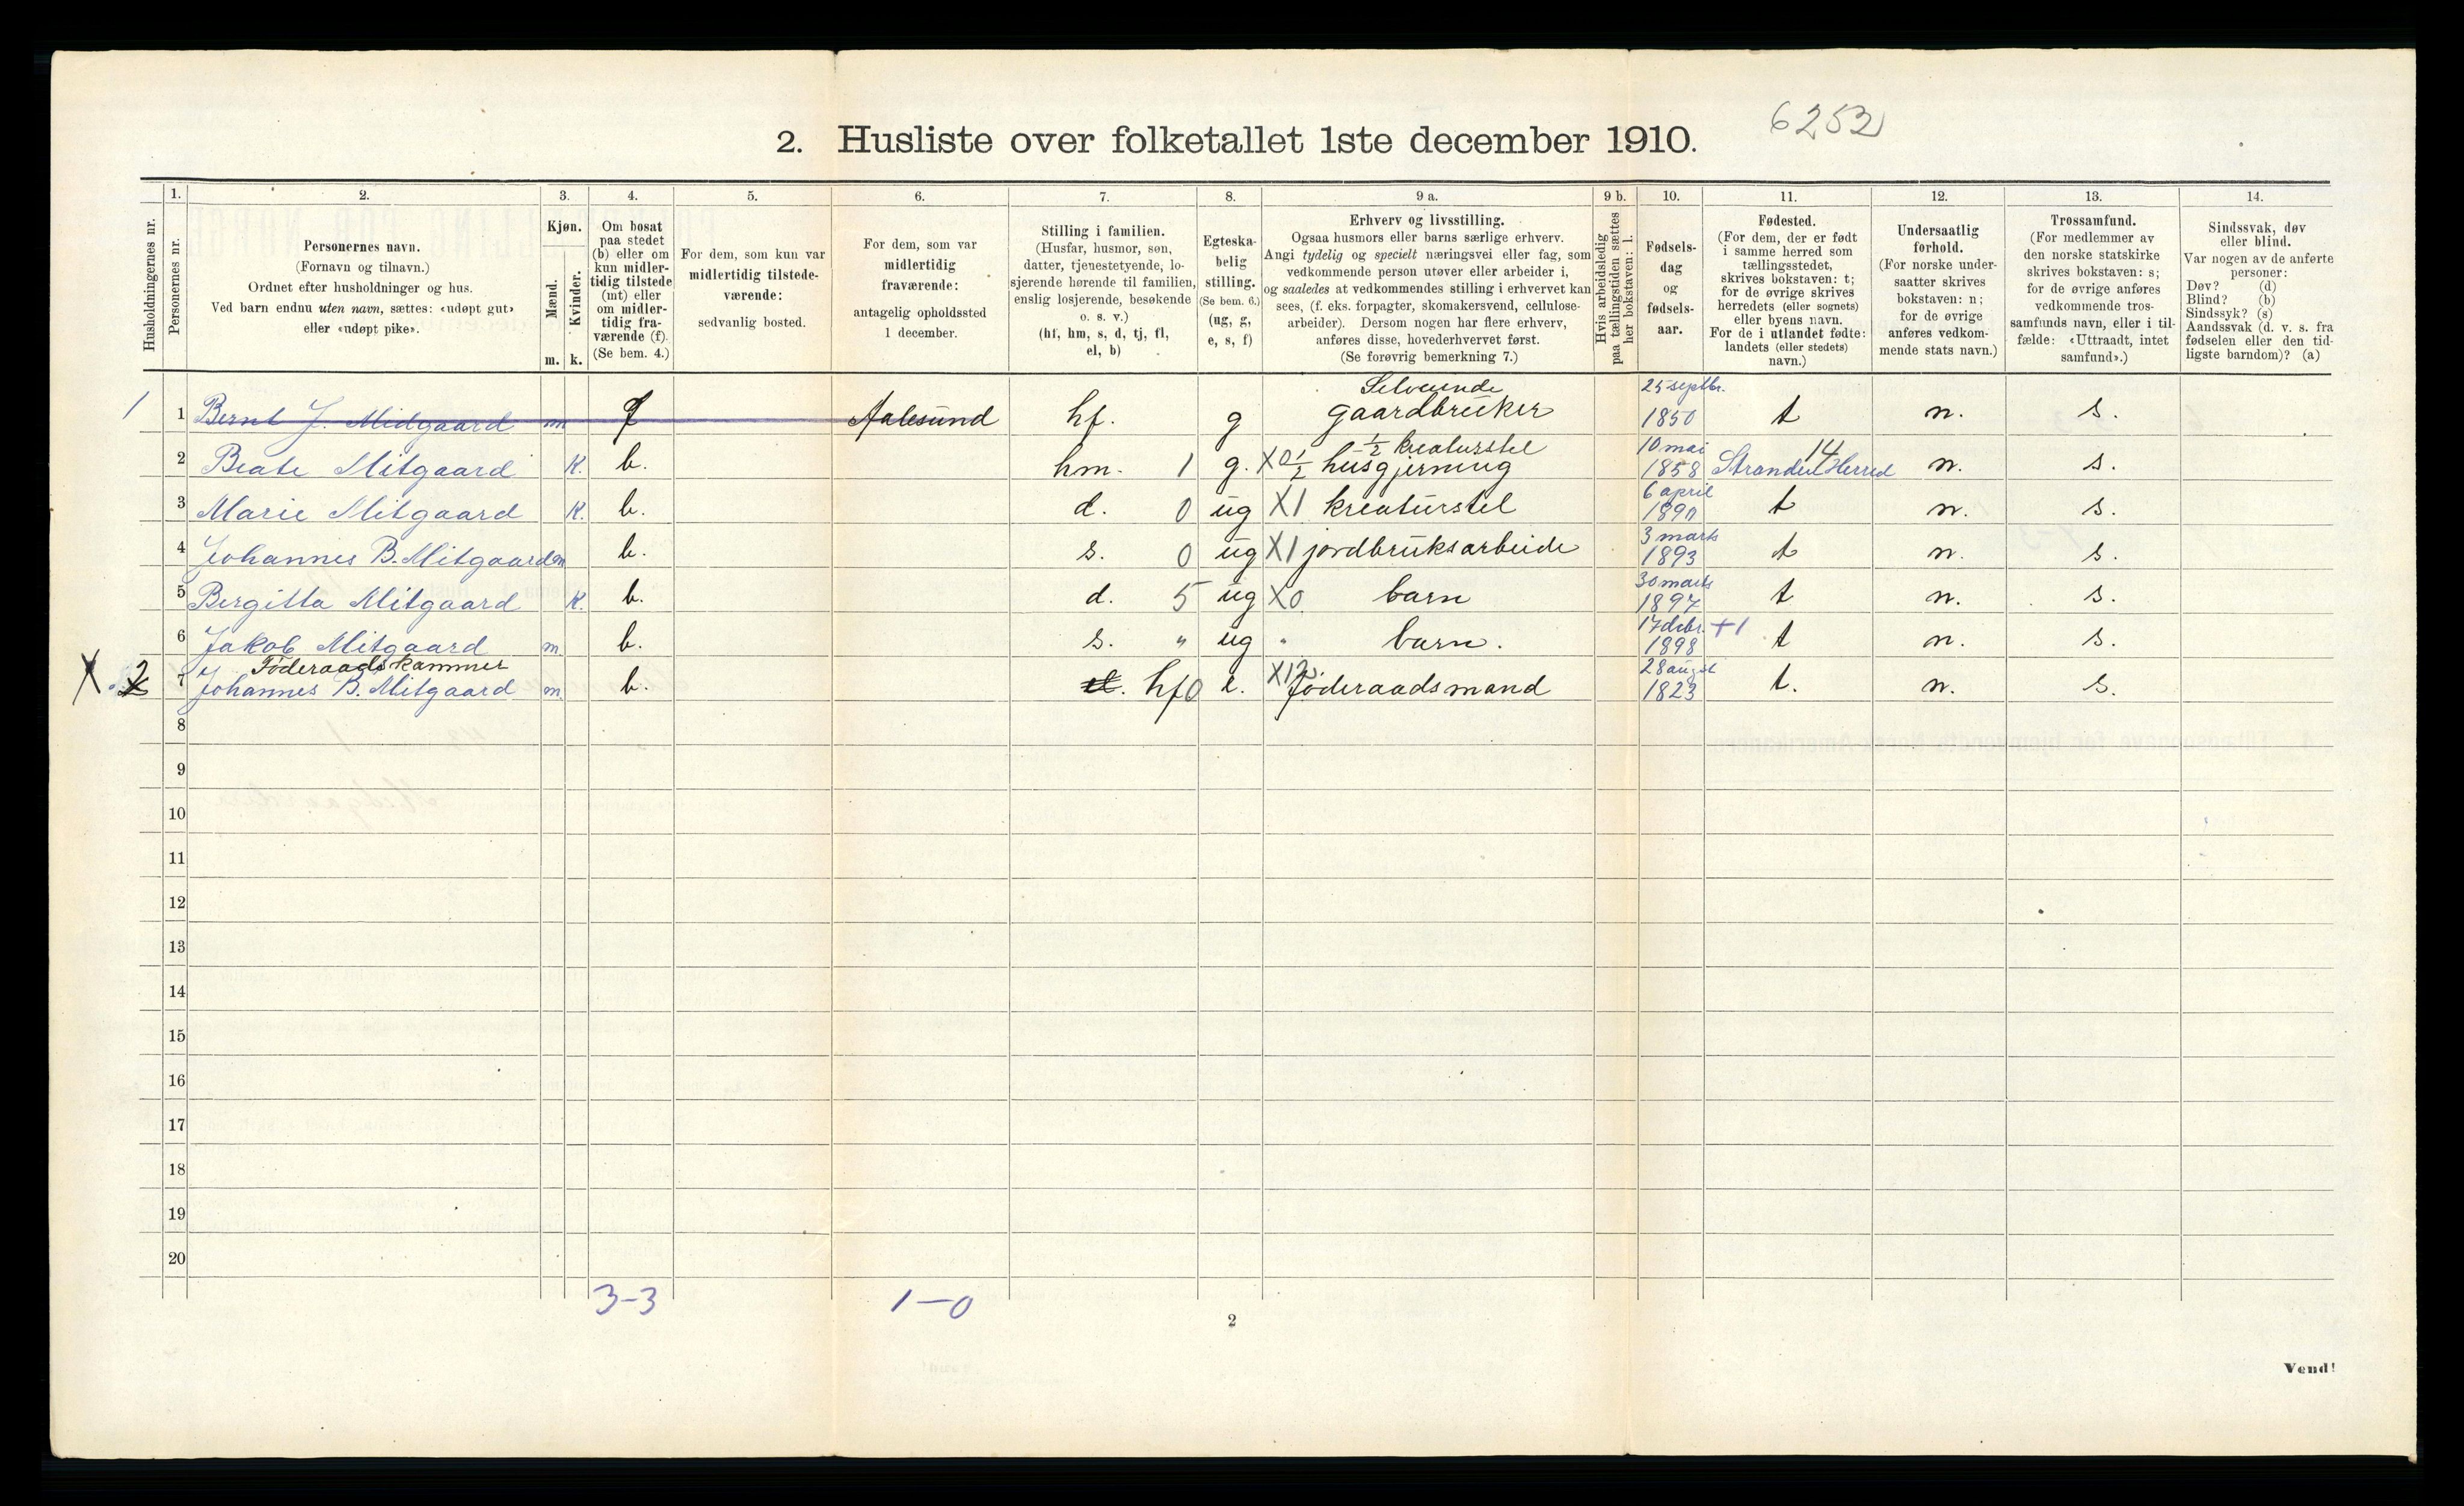 6252
2. Husliste over folketallet 1ste december 1910.
Husholdningernes nr.
1. Personernes nr.
2. Personernes navn.
(Fornavn og tilnavn.)
Ordnet efter husholdninger og hus.
Ved barn endnu uten navn, sættes: «udøpt gut»
eller «udøpt pike».
3. Kjøn.
Mænd. m.
Kvinder. k.
4. Om bosat
paa stedet
(b) eller om
kun midler-
tidig tilstede
(mt) eller
om midler-
tidig fra-
værende (f).
(Se bem. 4.)
5. For dem, som kun var
midlertidig tilstede-
værende:
sedvanlig bosted.
6. For dem, som var
midlertidig
fraværende:
antagelig opholdssted
1 december.
7. Stilling i familien.
(Husfar, husmor, søn,
datter, tjenestetyende, lo-
sjerende hørende til familien,
enslig losjerende, besøkende
o. s. v.)
(hf, hm, s, d, tj, fl,
el, b)
8. Egteska-
belig
stilling.
(Se bem. 6.)
(ug, g,
e, s, f)
9 a. Erhverv og livsstilling.
Ogsaa husmors eller barns særlige erhverv.
Angi tydelig og specielt næringsvei eller fag, som
vedkommende person utøver eller arbeider i,
og saaledes at vedkommendes stilling i erhvervet kan
sees, (f. eks. forpagter, skomakersvend, cellulose-
arbeider). Dersom nogen har flere erhverv,
anføres disse, hovederhvervet først.
(Se forøvrig bemerkning 7.)
9 b. Hvis arbeidsledig
paa tællingstiden sættes
her bokstaven: l.
10. Fødsels-
dag
og
fødsels-
aar.
11. Fødested.
(For dem, der er født
i samme herred som
tællingsstedet,
skrives bokstaven: t;
for de øvrige skrives
herredets (eller sognets)
eller byens navn.
For de i utlandet fødte:
landets (eller stedets)
navn.)
12. Undersaatlig
forhold.
(For norske under-
saatter skrives
bokstaven: n;
for de øvrige
anføres vedkom-
mende stats navn.)
13. Trossamfund.
(For medlemmer av
den norske statskirke
skrives bokstaven: s;
for de øvrige anføres
vedkommende tros-
samfunds navn, eller i til-
fælde: «Uttraadt, intet
samfund».)
14. Sindssvak, døv
eller blind.
Var nogen av de anførte
personer:
Døv? (d)
Blind? (b)
Sindssyk? (s)
Aandssvak (d. v. s. fra
fødselen eller den tid-
ligste barndom)? (a)
Selveiende 25 septbr.
1 1 Bernt J. Midgaard m f Aalesund hf. g gaardbruker 1850 t n. s.
1/2 kreaturstel 10 mai 14
2 Beate Mitgaard K. b. hm. 1 g. X0 1/2 husgjerning 1858 Stranden Herred n. s.
6 april
3 Marie Mitgaard K. b. d. 0 ug X1 kreaturstel 1890 t n. s.
3 marts
4 Johannes B. Mitgaard m b. s. 0 ug X1 jordbruksarbeide 1893 t n. s.
30 marts
5 Bergitta Mitgaard K. b. d. 5 ug X0 barn 1897 t n. s.
17 debr. +1
6 Jakob Mitgaard m b. s. " ug " barn. 1898 t n. s.
Föderaadskammer X12 28 augst
X. 2 7 Johannes B. Mitgaard m b. hf 0 e. föderaadsmand 1823 t. n. s.
8
9
10
11
12
13
14
15
16
17
18
19
20
3-3 1-0
2
Vend!